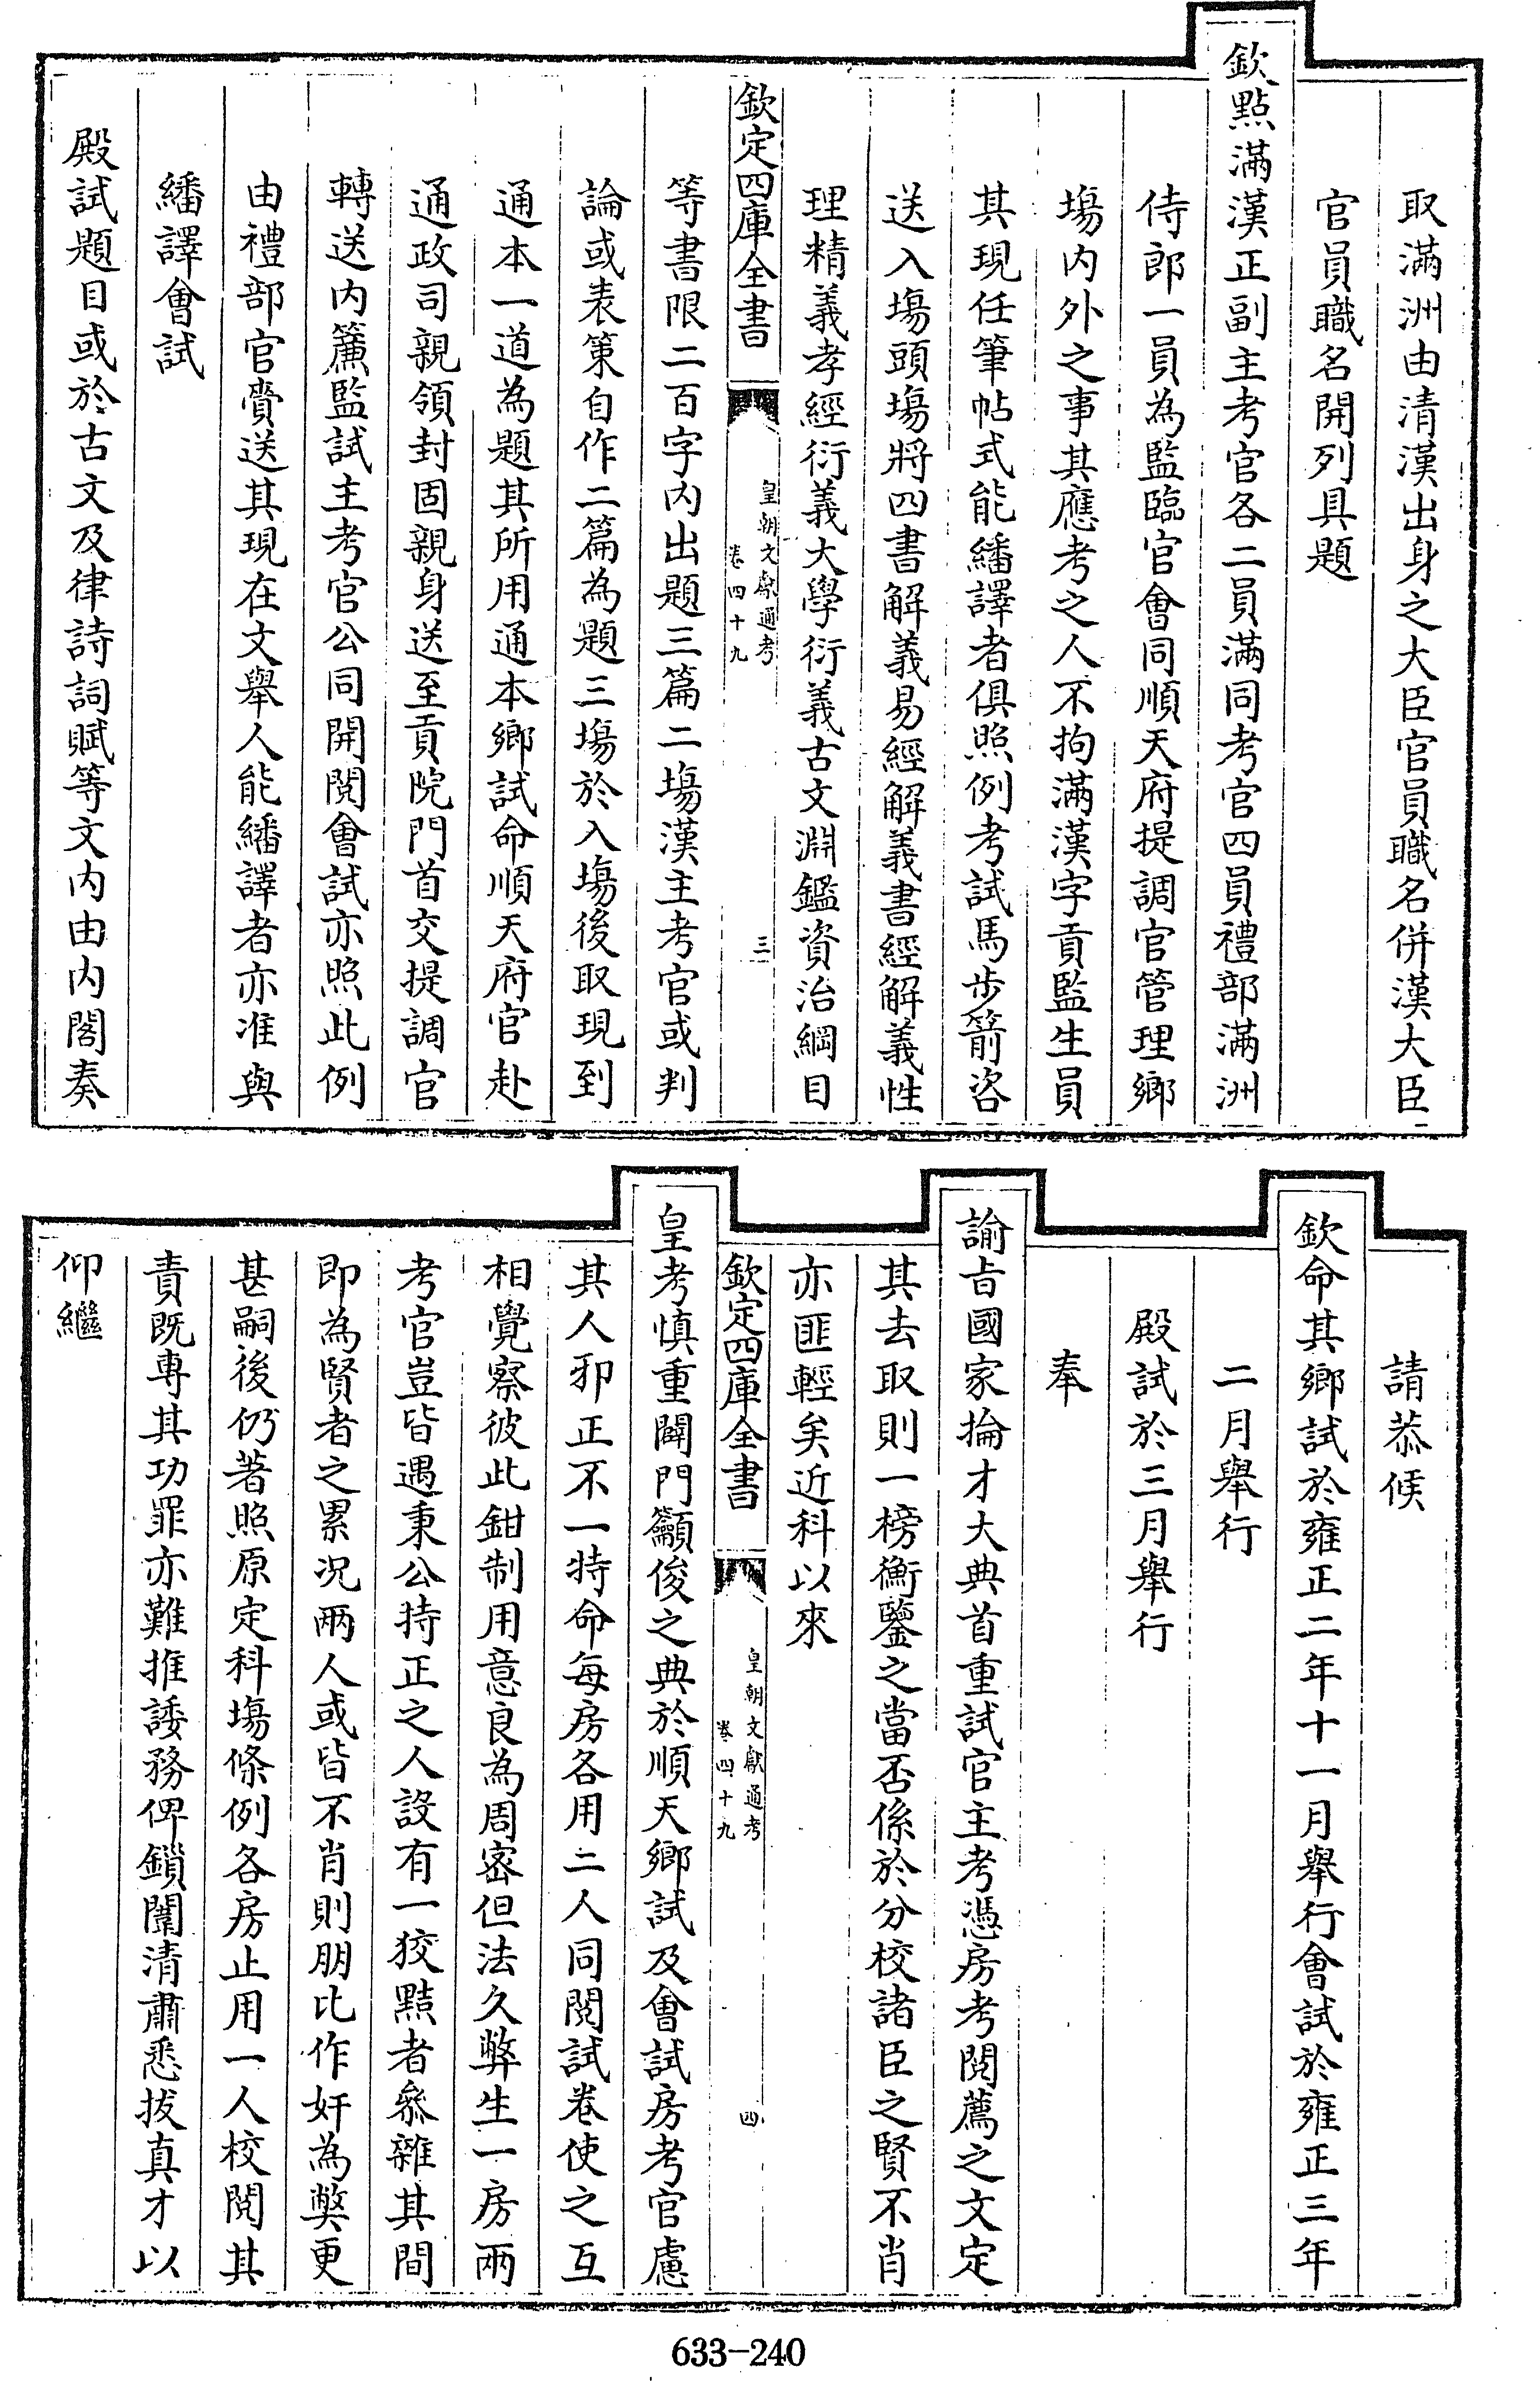 取滿洲由清漢出身之大臣官員職名併漢大臣
官員職名開列具題
欽點滿漢正副主考官各二員滿同考官四員禮部滿洲
侍郎一員為監臨官會同順天府提調官管理鄉
塲內外之事其應考之人不拘滿漢字貢監生員
其現任筆帖式能繙譯者俱照例考試馬步箭咨
送入塲頭塲將四書解義易經解義書經解義性
理精義孝經衍義大學衍義古文淵鑑資治綱目
欽定四庫全書
皇朝文獻通考
卷四十九
三
等書限二百字內出題三篇二塲漢主考官或判
論或表策自作二篇為題三塲於入塲後取現到
通本一道為題其所用通本鄉試命順天府官赴
通政司親領封固親身送至貢院門首交提調官
轉送內簾監試主考官公同開閱會試亦照此例
由禮部官賫送其現在文舉人能繙譯者亦准與
繙譯會試
殿試題目或於古文及律詩詞賦等文內由內閣奏
請恭候
欽命其鄉試於雍正二年十一月舉行會試於雍正三年
二月舉行
殿試於三月舉行
奉
諭旨國家掄才大典首重試官主考憑房考閱薦之文定
其去取則一榜衡鑒之當否係於分校諸臣之賢不肖
亦匪輕矣近科以來
欽定四庫全書
皇朝文獻通考
卷四十九
四
皇考慎重闢門籲俊之典於順天鄉試及會試房考官慮
其人邪正不一特命每房各用二人同閱試卷使之互
相覺察彼此鉗制用意良為周密但法久弊生一房兩
考官豈皆遇秉公持正之人設有一狡黠者叅雜其間
即為賢者之累況兩人或皆不肖則朋比作奸為弊更
甚嗣後仍著照原定科塲條例各房止用一人校閱其
責既專其功罪亦難推諉務俾鎖闈清肅悉拔真才以
仰繼
633-240